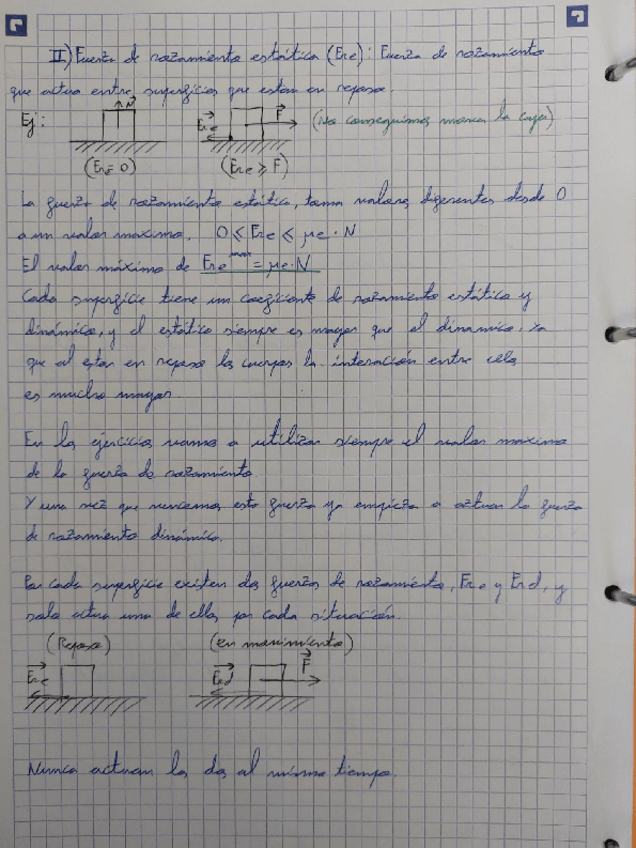 II) Fuerza de rozamiento estática (Fre): Fuerza de rozamiento
que actua entre superficies que estan en reposo.
Ej:
N
Fre
F
(No conseguimos mover la caja)
(Fre = 0)
(Fre ≥ F)
La fuerza de rozamiento estático, toma valores diferentes desde 0
a un valor maximo. 0 ≤ Fre ≤ μe · N
El valor máximo de Fre max = μe · N
Cada superficie tiene un coeficiente de rozamiento estático y
dinámico, y el estático siempre es mayor que el dinamico, ya
que al estar en reposo los cuerpos la interación entre ellos
es mucho mayor.
En los ejercicios vamos a utilizar siempre el valor maximo
de la fuerza de rozamiento.
Y una vez que vencemos esta fuerza ya empieza a actuar la fuerza
de rozamiento dinámico.
En cada superficie existen dos fuerzas de rozamiento, Fre y Frd, y
solo actua una de ellas por cada situación.
(Reposo)
(en movimiento)
Fre
Frd
F
Nunca actuan los dos al mismo tiempo.